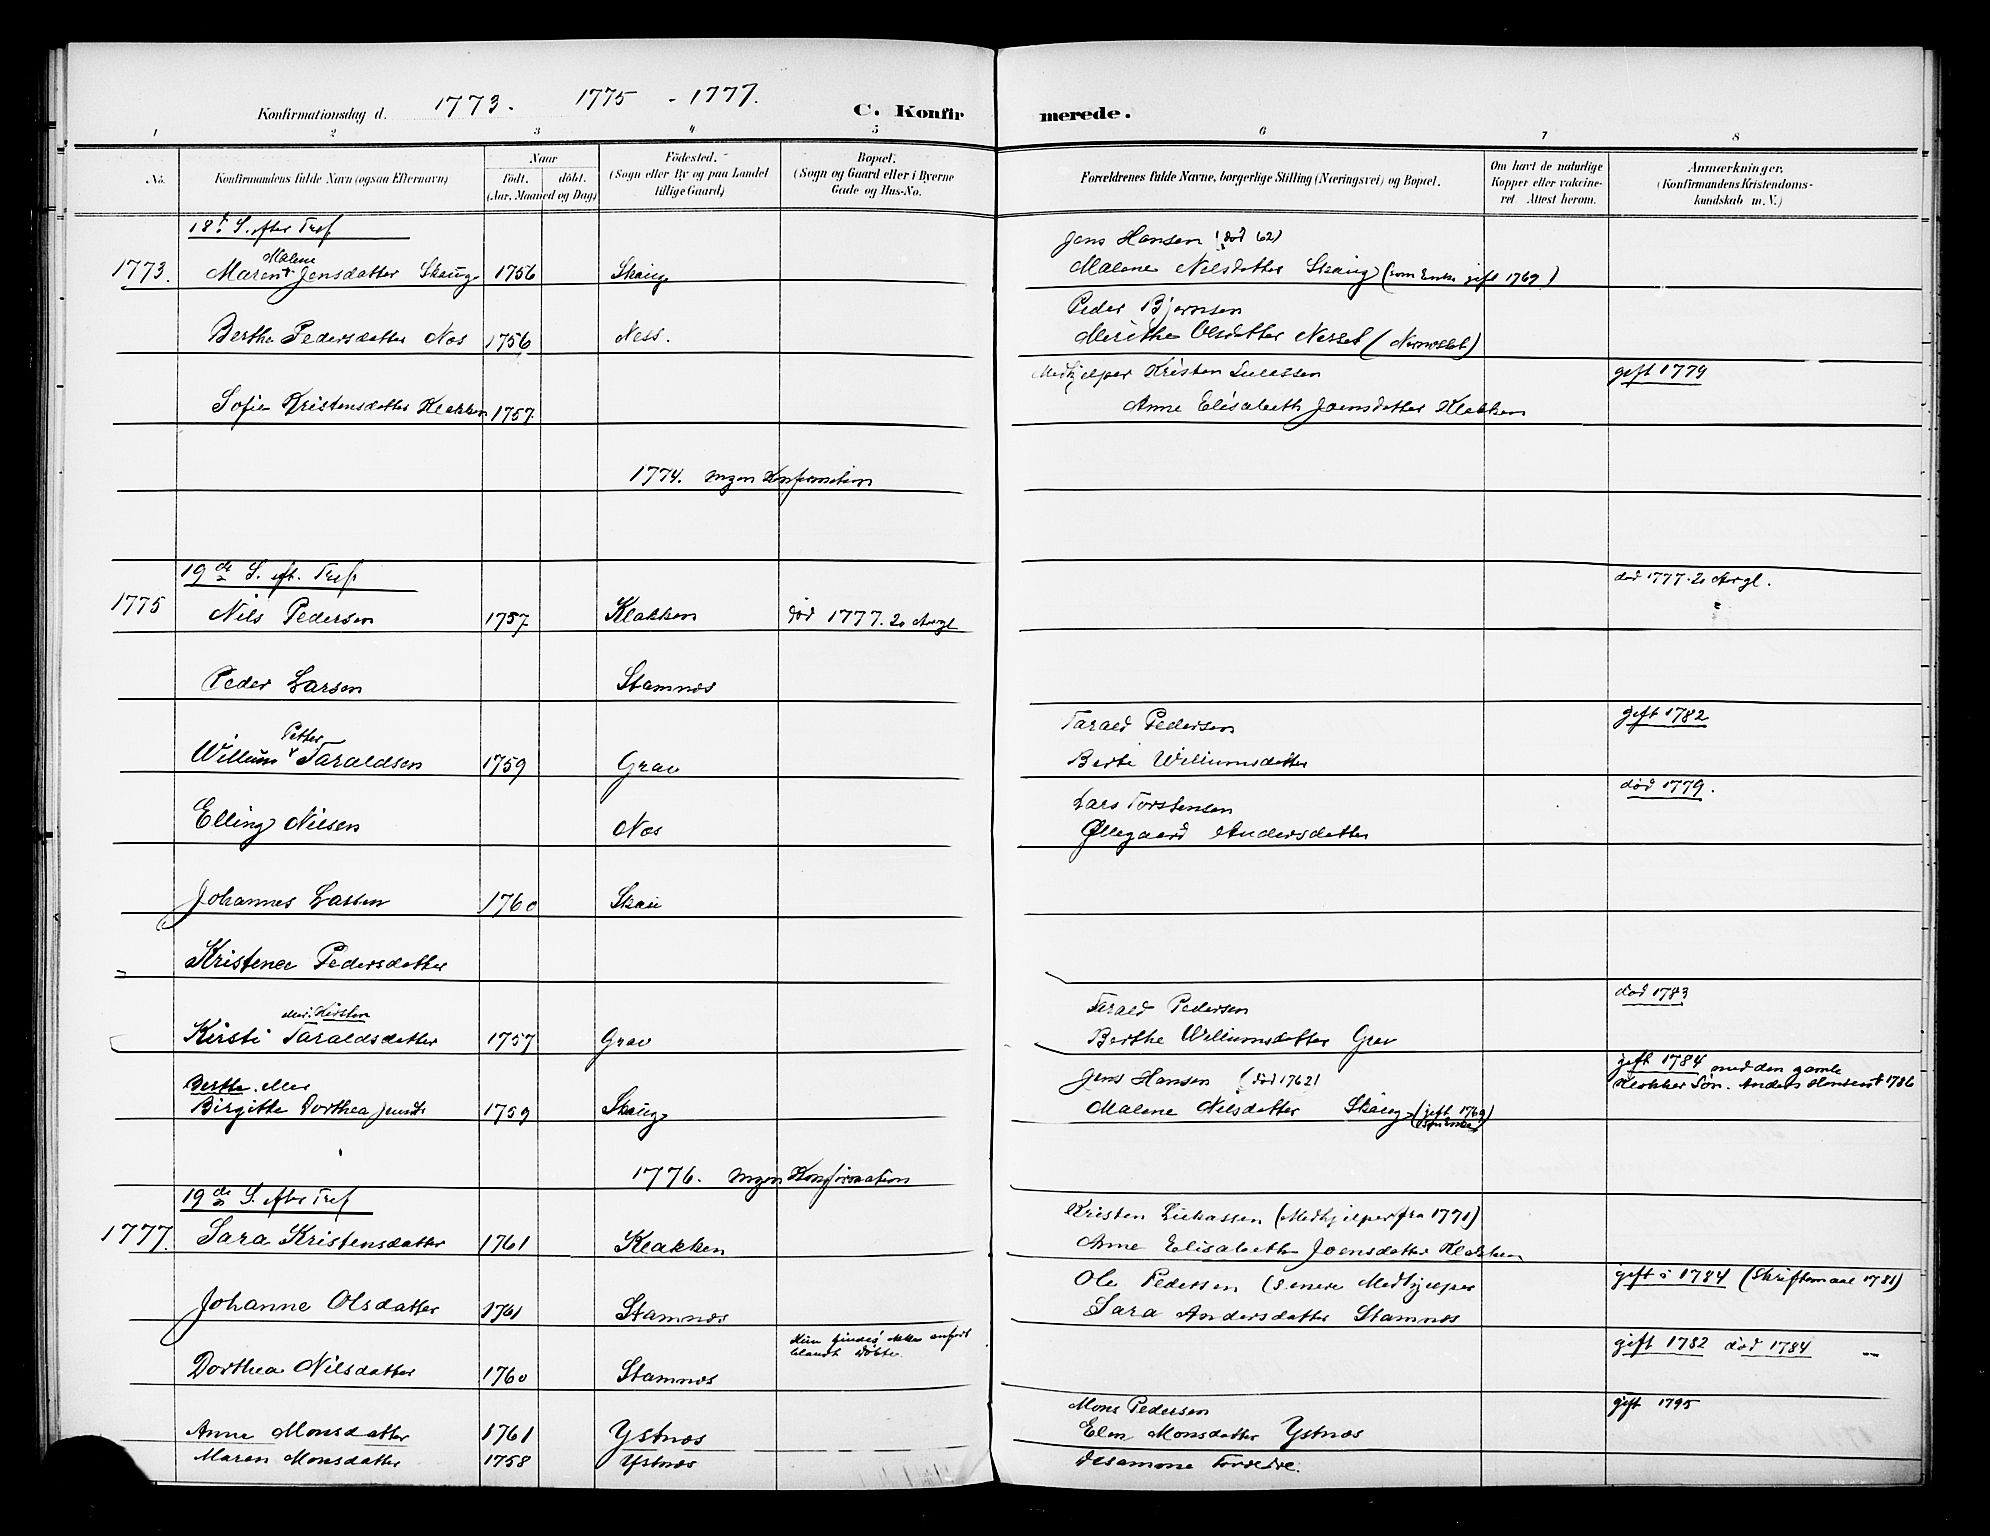 Konfirmationsdag d. 1773. 1775 - 1777. C. Konfirmerede.
1 2 3 4 5 6 7 8
No.
Konfirmandens fulde Navn (ogsaa Efternavn)
Naar
Født. døbt.
(Aar, Maaned og Dag)
Fødested.
(Sogn eller By og paa Landet
tillige Gaard)
Bopæl.
(Sogn og Gaard eller i Byerne
Gade og Hus-No.
Forældrenes fulde Navne, borgerlige Stilling (Næringsvei) og Bopæl.
Om havt de naturlige
Kopper eller vakcine-
ret Attest herom.
Anmærkninger,
(Konfirmandens Kristendoms-
kundskab m. V.)
18de S. efter Tref
Malene
1773. Maren Jensdatter Skaug 1756 Skaug
Jens Hansen (død 62)
Malene Nilsdatter Skaug (som Enke gift 1769)
Berthe Pedersdatter Nos 1756 Ness.
Peder Bjørnsen
Merithe Olsdatter Nesset
Sofie Kristensdatter Klakken 1757
Medhjelper Kristen Lucassen gift 1779
Anne Elisabeth Joensdatter Klakken
1774. ingen Konfirmation
19de S. eft. Tref.
1775 Nils Pedersen 1757 Klakken død 1777. 20 Aargl
død 1777. 20 Aargl.
Peder Larsen Stamnos
Petter
Willum Taraldsen 1759 Grav
Tarald Pedersen gift 1782
Berte Williumsdatter
Elling Nilsen Nos
Lars Torstensen død 1779.
Øllegaard Andersdatter
Johannes Lassen 1760 Skau
Kristence Pedersdatter
Kirsten
Kirsti Taraldsdatter 1757 Grav
Tarald Pedersen død 1783
Berthe Williumsdatter Grav
Berthe eller
Birgitte Dorthea Jensdt 1759 Skaug
Jens Hansen (død 1762) gift 1784 med den gamle
Klokker Søn. Anders Monsen † 1786
Malene Nilsdatter Skaug (gift 1769)
1776. ingen Konfirmation
19de S. efter Tref
1777. Sara Kristensdatter 1761 Klakken
Kristen Lukassen (Medhjelper fra 1771)
Anne Elisabeth Joensdatter Klakken
Johanne Olsdatter 1761 Stamnos
Ole Pedersen (senere Medhjelper gift i 1784 (Skriftemaal 1781)
Sara Andersdatter Stamnos
Dorthea Nilsdatter 1760 Stamnos
Hun findes ikke anført
blandt døbte.
gift 1782 død 1784
Anne Monsdatter 1761 Ystnos
Mons Pedersen gift 1795
Elen Monsdatter Ystnos
Maren Monsdatter 1758 Ystnos
desamme Foreldre.